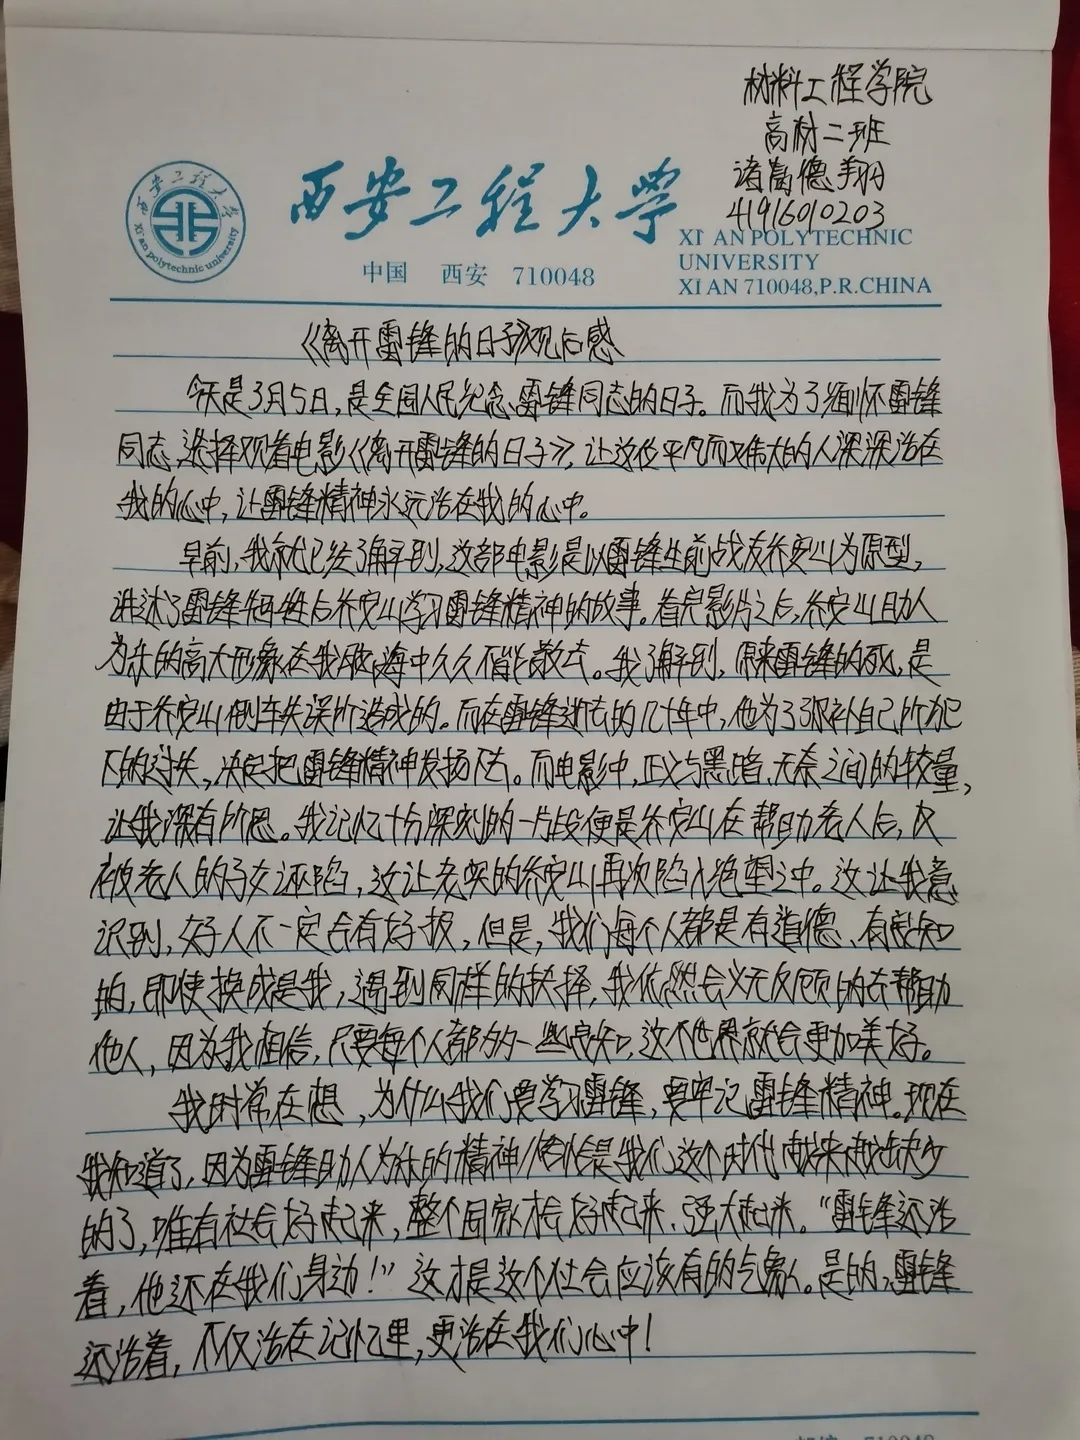 材料工程学院
高材二班
诸葛德翔
41916010203
西安工程大学
西安工程大学
Xi'an polytechnic university
XI'AN POLYTECHNIC
UNIVERSITY
中国 西安 710048
XI AN 710048,P.R.CHINA
《离开雷锋的日子》观后感
今天是3月5日,是全国人民纪念雷锋同志的日子。而我为了缅怀雷锋
同志,选择观看电影《离开雷锋的日子》,让这位平凡而又伟大的人深深活在
我的心中,让雷锋精神永远活在我的心中。
早前,我就已经了解到,这部电影是以雷锋生前战友乔安山为原型,
讲述了雷锋牺牲后乔安山学习雷锋精神的故事。看完影片之后,乔安山助人
为乐的高大形象在我脑海中久久不能散去。我了解到,原来雷锋的死,是
由于乔安山倒车失误所造成的。而在雷锋逝去的几十年中,他为了弥补自己所犯
下的过失,决定把雷锋精神发扬下去。而电影中,正义与黑暗、无奈之间的较量,
让我深有所思。我记忆十分深刻的一片段便是乔安山在帮助老人后,反
被老人的子女诬陷,这让老实的乔安山再次陷入绝望之中。这让我意
识到,好人不一定会有好报,但是,我们每个人都是有道德、有良知
的,即使换成是我,遇到同样的抉择,我依然会义无反顾的去帮助
他人,因为我相信,只要每个人都多一些良知,这个世界就会更加美好。
我时常在想,为什么我们要学习雷锋,要牢记雷锋精神。现在
我知道了,因为雷锋助人为乐的精神恰恰是我们这个时代越来越缺少
的了,唯有社会好起来,整个国家才会好起来、强大起来。“雷锋还活
着,他还在我们身边!”这才是这个社会应该有的气象。是的,雷锋
还活着,不仅活在记忆里,更活在我们心中!